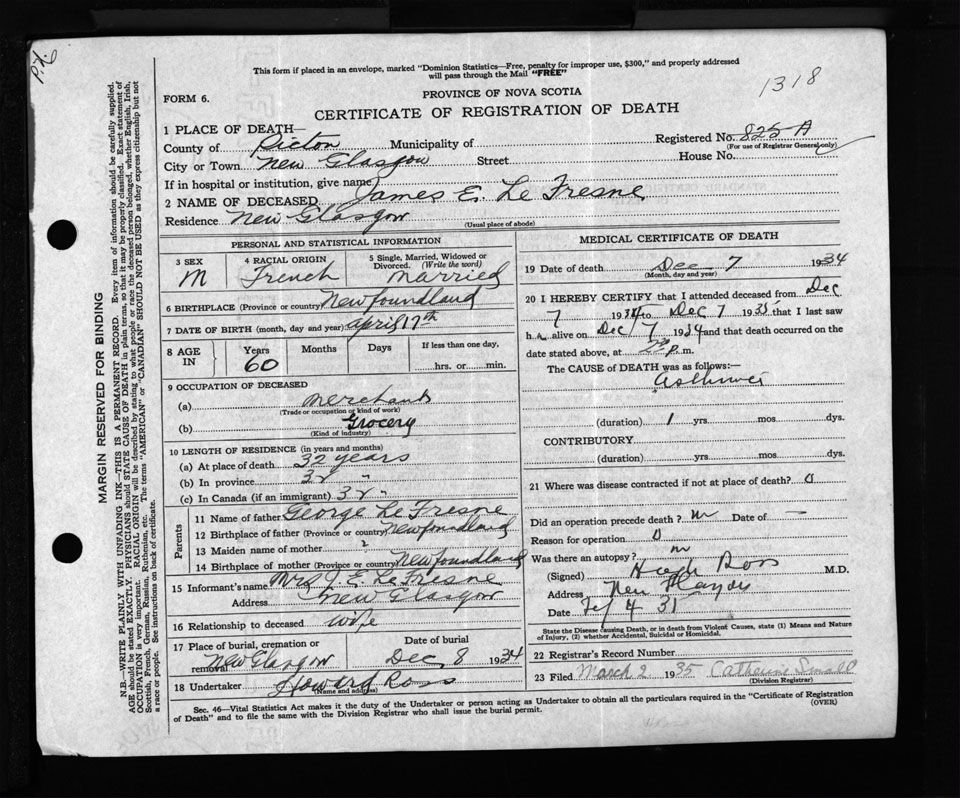 P.X.6
This form if placed in an envelope, marked "Dominion Statistics—Free, penalty for improper use, $300," and properly addressed
will pass through the Mail "FREE"
1318
FORM 6.
PROVINCE OF NOVA SCOTIA
CERTIFICATE OF REGISTRATION OF DEATH
1 PLACE OF DEATH—
Registered No. 825 A
(For use of Registrar General only)
County of Pictou Municipality of
City or Town New Glasgow Street House No.
If in hospital or institution, give name
2 NAME OF DECEASED James E. Le Fresne
Residence New Glasgow
(Usual place of abode)
PERSONAL AND STATISTICAL INFORMATION
3 SEX M
4 RACIAL ORIGIN French
5 Single, Married, Widowed or Divorced. (Write the word) Married
6 BIRTHPLACE (Province or country) Newfoundland
7 DATE OF BIRTH (month, day and year) April 17th
8 AGE IN Years 60 Months Days If less than one day, hrs. or min.
9 OCCUPATION OF DECEASED
(a) Merchant
(Trade or occupation or kind of work)
(b) Grocery
(Kind of industry)
10 LENGTH OF RESIDENCE (in years and months)
(a) At place of death 32 years
(b) In province 32 "
(c) In Canada (if an immigrant) 32 "
Parents
11 Name of father George Le Fresne
12 Birthplace of father (Province or country) Newfoundland
13 Maiden name of mother ?
14 Birthplace of mother (Province or country) Newfoundland
15 Informant's name Mrs J. E. Le Fresne
Address New Glasgow
16 Relationship to deceased wife
17 Place of burial, cremation or removal New Glasgow
Date of burial Dec 8 1934
18 Undertaker Howard Ross
(Name and address)
MEDICAL CERTIFICATE OF DEATH
19 Date of death Dec 7 1934
(Month, day and year)
20 I HEREBY CERTIFY that I attended deceased from Dec
7 1934 to Dec 7 1935 that I last saw
h alive on Dec 7 1934 and that death occurred on the
date stated above, at p. m.
The CAUSE OF DEATH was as follows:—
(duration) 1 yrs. mos. dys.
CONTRIBUTORY
(duration) yrs. mos. dys.
21 Where was disease contracted if not at place of death? 0
Did an operation precede death? Date of —
Reason for operation 0
Was there an autopsy?
(Signed) Hugh Ross M.D.
Address New Glasgow
Date
State the Disease causing Death, or in death from Violent Causes, state (1) Means and Nature
of Injury, (2) whether Accidental, Suicidal or Homicidal.
22 Registrar's Record Number
23 Filed March 2 1935 Catherine Small
(Division Registrar)
Sec. 46—Vital Statistics Act makes it the duty of the Undertaker or person acting as Undertaker to obtain all the particulars required in the "Certificate of Registration
of Death" and to file the same with the Division Registrar who shall issue the burial permit.
(OVER)
MARGIN RESERVED FOR BINDING
N.B.—WRITE PLAINLY WITH UNFADING INK—THIS IS A PERMANENT RECORD. Every item of information should be carefully supplied.
AGE should be stated EXACTLY. PHYSICIANS should STATE CAUSE OF DEATH in plain terms, so that it may be properly classified. Exact statement of
OCCUPATION is very important. RACIAL ORIGIN will be described by stating to what people or race the deceased person belonged, whether English, Irish,
Scottish, French, German, Russian, Ruthenian, etc. The terms "AMERICAN" or "CANADIAN" SHOULD NOT BE USED as they express citizenship but not
a race or people. See instructions on back of certificate.